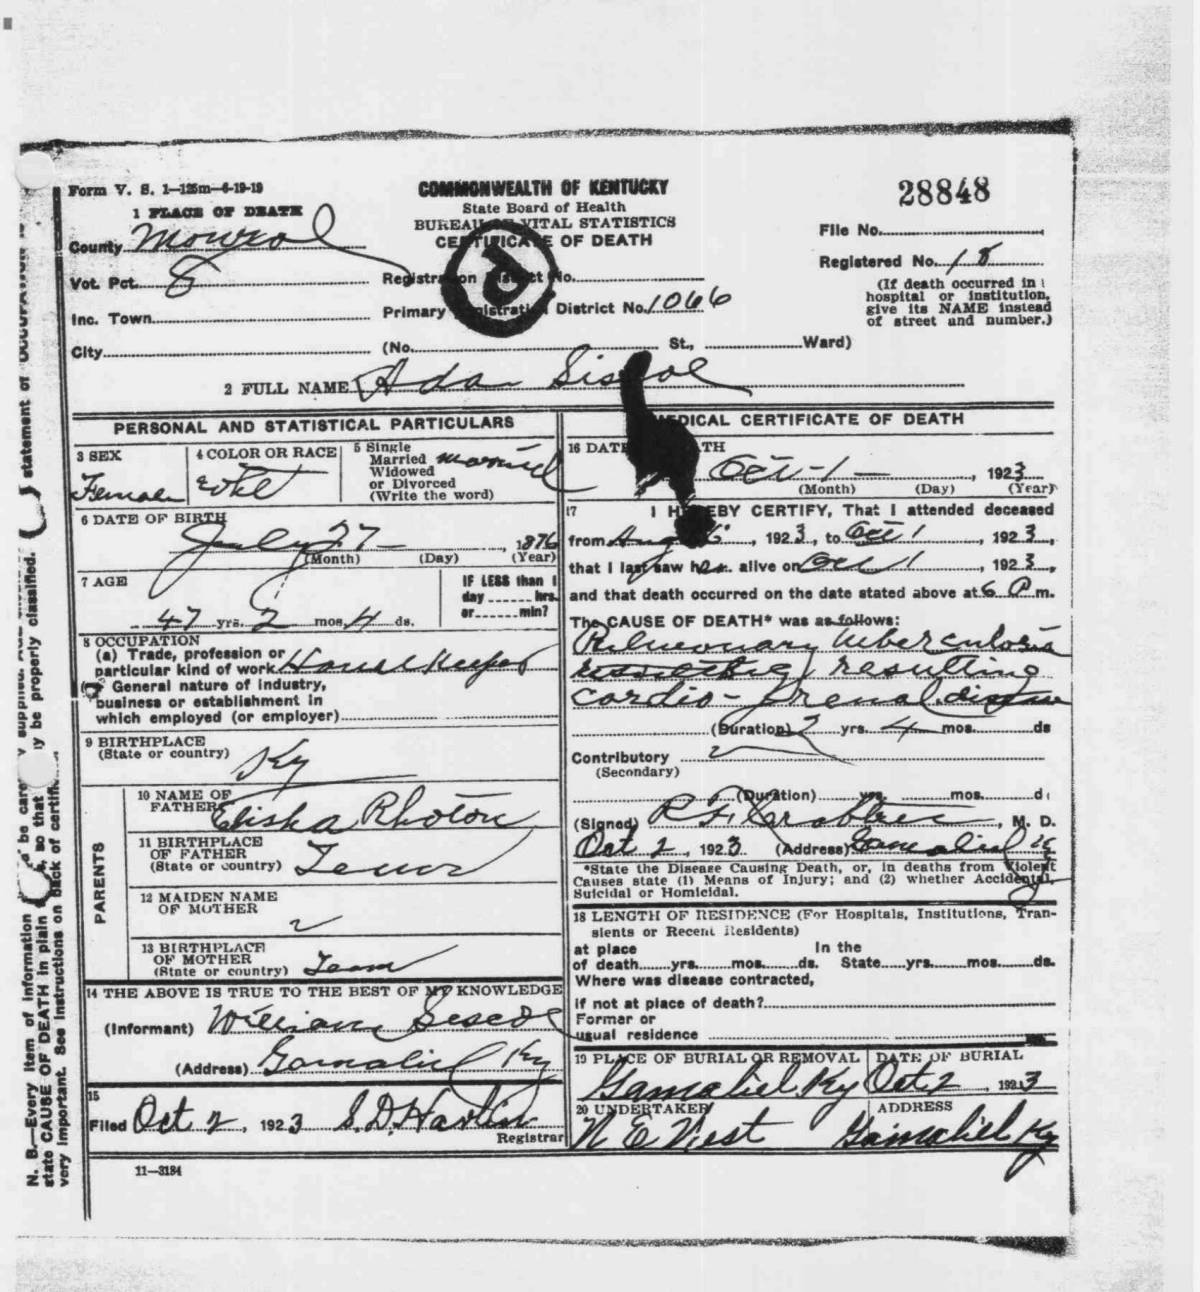 Form V. S. 1—125m—6-19-19
COMMONWEALTH OF KENTUCKY
State Board of Health
BUREAU OF VITAL STATISTICS
CERTIFICATE OF DEATH
28848
1 PLACE OF DEATH
County Monroe
File No.
Vot. Pct. 8
Registration District No.
Registered No. 18
Inc. Town
Primary Registration District No. 1066
(If death occurred in
hospital or institution,
give its NAME instead
of street and number.)
City (No. St., Ward)
2 FULL NAME Ada Siscoe
PERSONAL AND STATISTICAL PARTICULARS
3 SEX
Female
4 COLOR OR RACE
5 Single
Married
Widowed
or Divorced
(Write the word)
married
6 DATE OF BIRTH
July 27, 1876
(Month) (Day) (Year)
7 AGE
47 yrs. 2 mos. 4 ds.
IF LESS than 1
day hrs.
or min?
8 OCCUPATION
(a) Trade, profession or
particular kind of work House Keeper
General nature of industry,
business or establishment in
which employed (or employer)
9 BIRTHPLACE
(State or country)
Ky
PARENTS
10 NAME OF
FATHER Elisha Rhoton
11 BIRTHPLACE
OF FATHER
(State or country) Tenn
12 MAIDEN NAME
OF MOTHER
13 BIRTHPLACE
OF MOTHER
(State or country) Tenn
14 THE ABOVE IS TRUE TO THE BEST OF MY KNOWLEDGE
(Informant) William Sescoe
(Address) Gamaliel Ky
15
Filed Oct 2, 1923 S.D. Harlin
Registrar
11—3184
MEDICAL CERTIFICATE OF DEATH
16 DATE OF DEATH
Oct - 1 - , 1923
(Month) (Day) (Year)
17 I HEREBY CERTIFY, That I attended deceased
from Aug , 1923, to Oct 1 , 1923,
that I last saw her alive on Oct 1 , 1923,
and that death occurred on the date stated above at 6 P m.
The CAUSE OF DEATH* was as follows:
Pulmonary tuberculosis
resulting
cardio-renal disease
(Duration) 2 yrs. 4 mos. ds
Contributory
(Secondary)
(Duration) yrs. mos. d
(Signed) R F Crabtree, M. D.
Oct 2, 1923 (Address) Gamaliel Ky
*State the Disease Causing Death, or, in deaths from Violent
Causes state (1) Means of Injury; and (2) whether Accidental,
Suicidal or Homicidal.
18 LENGTH OF RESIDENCE (For Hospitals, Institutions, Tran-
sients or Recent Residents)
at place In the
of death yrs. mos. ds. State yrs. mos. ds.
Where was disease contracted,
if not at place of death?
Former or
usual residence
19 PLACE OF BURIAL OR REMOVAL
Gamaliel Ky
DATE OF BURIAL
Oct 2 1923
20 UNDERTAKER
N E West
ADDRESS
Gamaliel Ky